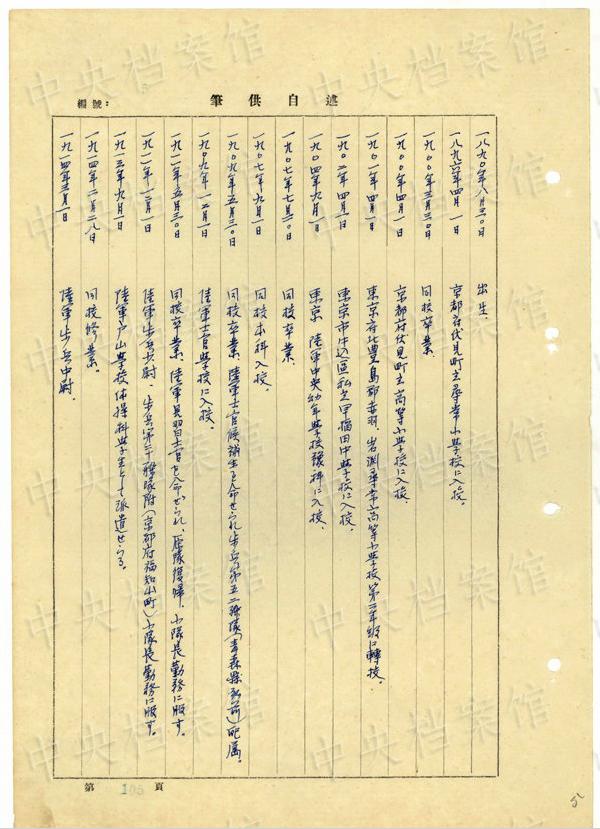 編號：
筆供自述
一八九〇年八月三〇日 出生．
一八九六年四月一日 京都府伏見町立尋常小学校に入校。
一九〇〇年三月三〇日 同校卒業
一九〇〇年四月一日 京都府伏見町立高等小学校に入校。
一九〇一年四月一日 東京府北豊島郡赤羽、岩渕尋常高等小学校第二年級に轉校。
一九〇二年四月一日 東京市牛込區私立早稲田中学校に入校。
一九〇四年九月一日 東京 陸軍中央幼年学校豫科に入校。
一九〇七年七月三〇日 同校卒業．
一九〇七年九月一日 同校本科入校。
一九〇九年五月三〇日 同校卒業、陸軍士官候補生を命せられ歩兵第五二聯隊(青森縣弘前)配属。
一九〇九年一二月一日 陸軍士官学校に入校。
一九一一年五月三〇日 同校卒業、陸軍見習士官を命ぜられ、原隊復帰、小隊長勤務に服す。
一九一一年一二月一日 陸軍歩兵少尉、歩兵第二十聯隊附(京都府福知山町)小隊長勤務に服す。
一九一三年九月一日 陸軍戸山学校体操科学生として派遣せらる。
一九一四年二月二八日 同校修業。
一九一四年三月一日 陸軍歩兵中尉。
第 105 頁
5
中央档案馆